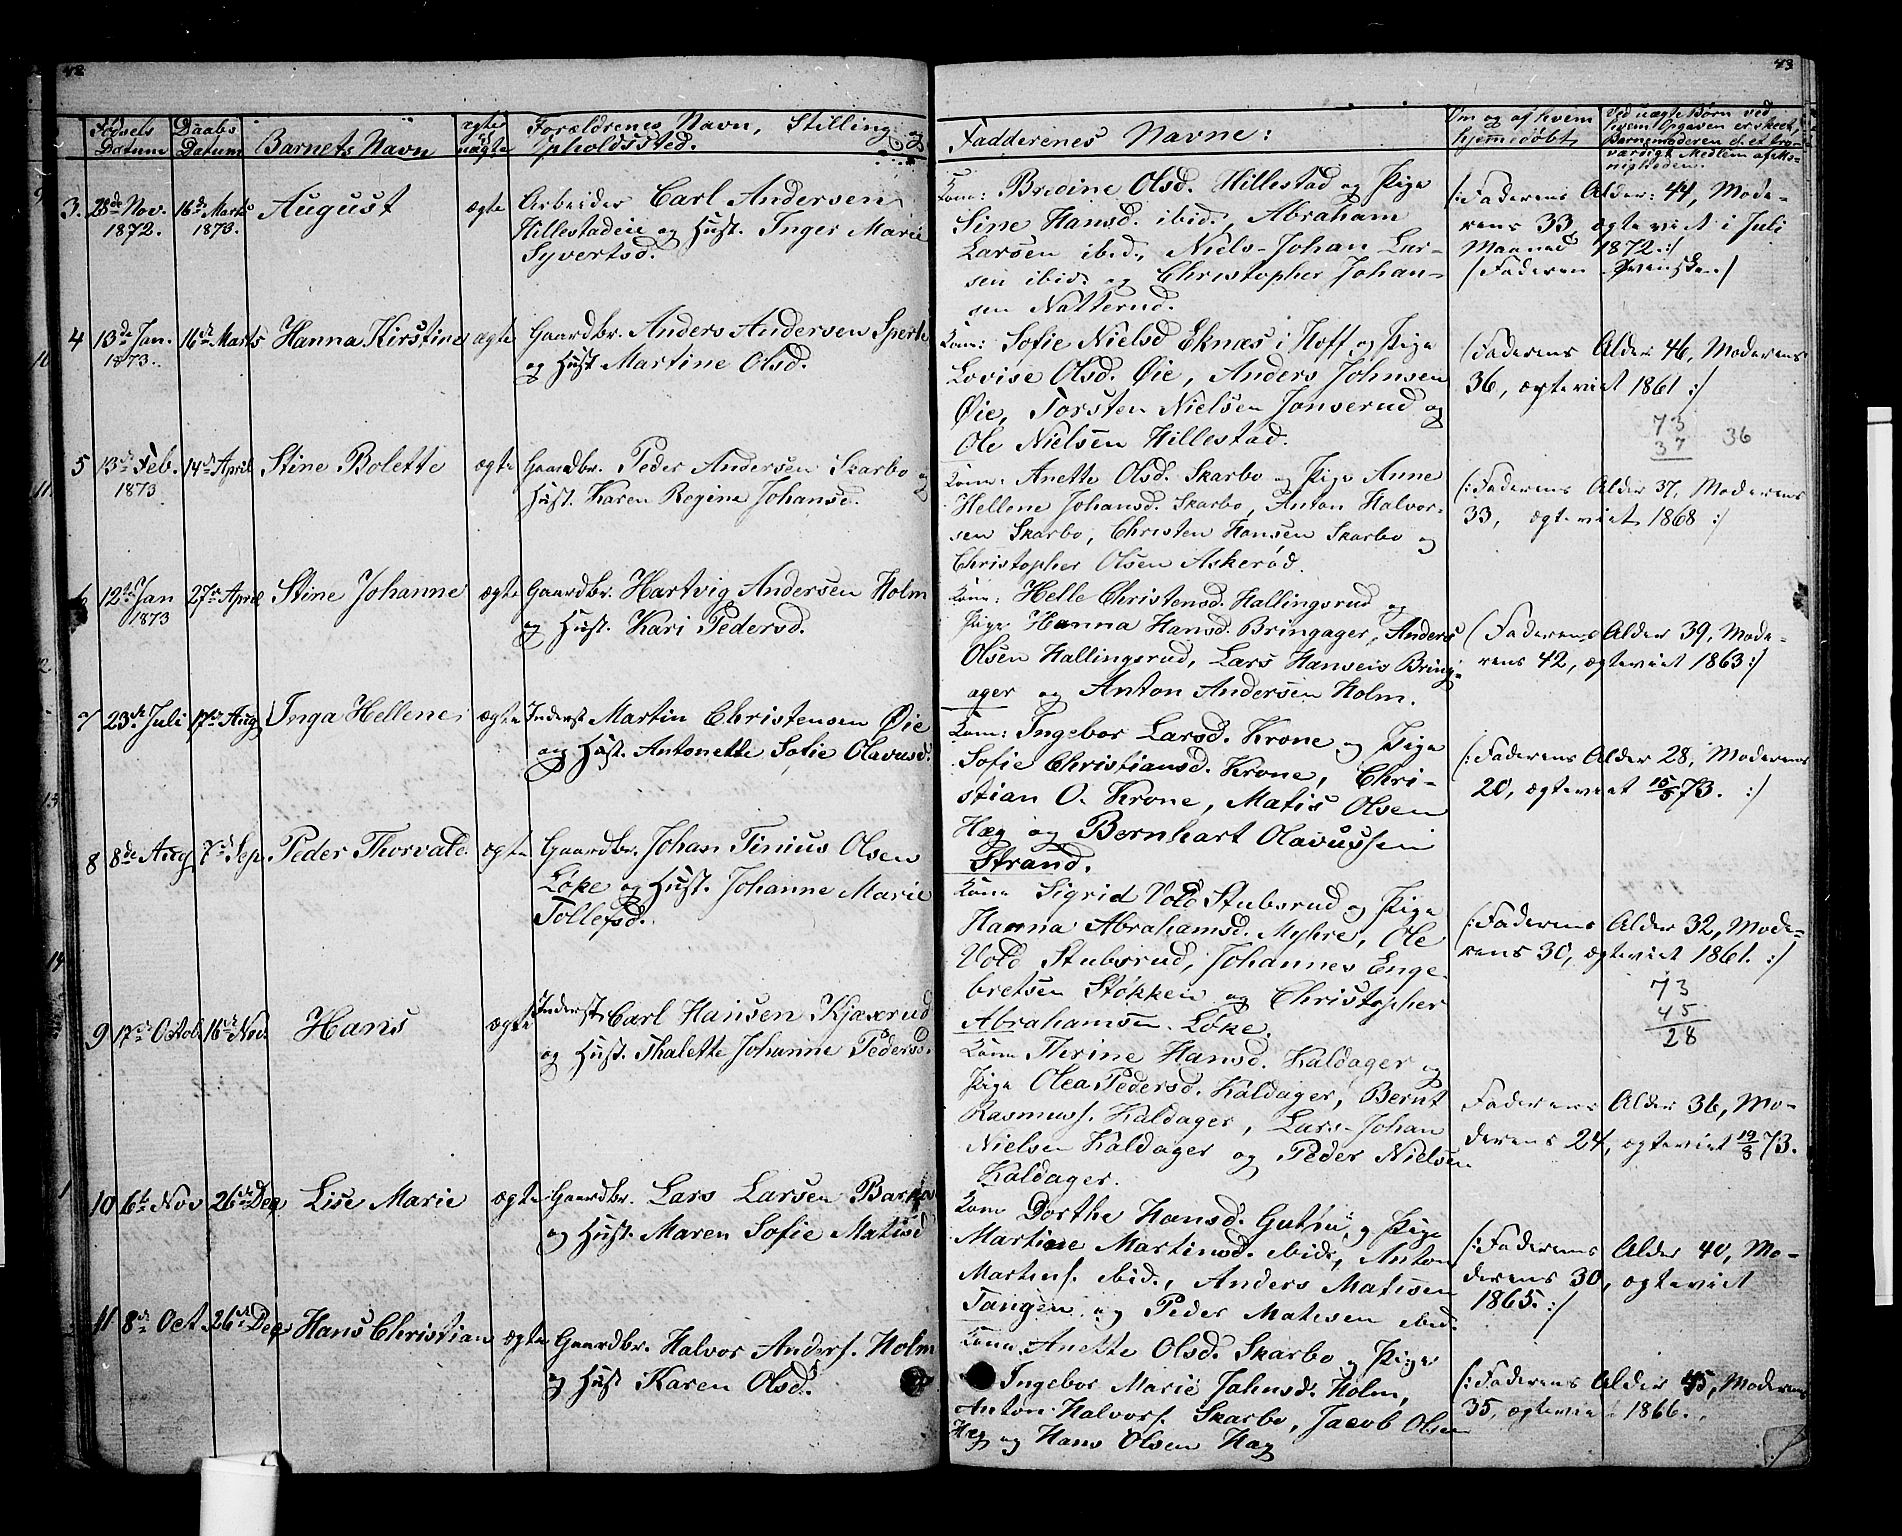 42
Fødsels Datum
Daabs Datum
Barnets Navn
ægte uægte
Forældrenes Navn, Stilling og
Opholdssted.
3. 28de Nov. 1872. 16de Marts 1873. August ægte Arbeider Carl Andersen
Hillestadeie og Hust. Inger Marie
Syvertsd.
4 13de Jan. 1873. 16de Marts Hanna Kirstine ægte Gaardbr. Anders Andersen Sperle
og Hust Martine Olsd.
5 13de Feb. 1873 14de April Stine Bolette ægte Gaardbr. Peder Andersen Skarbo og
Hust. Karen Regine Johansd.
6 12te Jan 1873 27de April Stine Johanne ægte Gaardbr. Hartvig Andersen Holm
og Hust. Kari Pedersd.
7 23de Juli 17de Aug Inga Hellene ægte Inderst Martin Christensen Øie
og Hust. Antonette Sofie Olavusd.
8 8de Aug 7de Sep. Peder Thorvald ægte Gaardbr. Johan Tinius Olsen
Løke og Hust. Johanne Marie
Tollefsd.
9 17de Octob. 16de Nov. Hans ægte Inderst Carl Hansen Kjæxrud
og Hust. Thalette Johanne Pedersd.
10 6te Nov 26de Dec Lise Marie ægte Gaardbr. Lars Larsen
og Hust. Maren Sofie Matisd
11 8de Oct. 26de Dec Hans Christian ægte Gaardbr. Halvor Anders. Holm
og Hust Karen Olsd.
43
Fadderenes Navne:
Om og af hvem
hjemmedøbt
Ved uægte Børn ved
hvem Opgaven er skeet,
Barnemoderen el. et tro-
værdigt Medlem af Me-
nigheden.
Kone: Bredine Olsd. Hillestad og Pige
Sine Hansd. ibid., Abraham
Larsen ibid., Niels-Johan Lar-
sen ibid. og Christopher Johan-
sen Natterud.
/: Faderens Alder: 44, Mode-
rens 33, ægteviet i Juli
Maaned 1872:/
/Faderen Svenske:/
Kone: Sofie Nielsd Eknæs i Hoff og Pige
Lovise Olsd. Øie, Anders Johnsen
Øie, Torsten Nielsen Jonserud og
Ole Nielsen Hillestad.
/Faderens Alder 46, Moderens
36, ægteviet 1861:/
73
37 36
Kone: Anette Olsd. Skarbo og Pige Anne
Hellene Johansd. Skarbo, Anton Halvor-
sen Skarbo, Christen Hansen Skarbo og
Christopher Olsen Askerød.
/: Faderens Alder 37, Moderens
33, ægteviet 1868:/
Kone: Helle Christensd. Hallingsrud og
Pige Hanna Hansd. Bringager, Anders
Olsen Hallingsrud, Lars Hansen Bring-
ager og Anton Andersen Holm.
/Faderens Alder 39, Mode-
rens 42, ægteviet 1863:/
Kone: Ingebor Larsd. Krone og Pige
Sofie Christiansd. Krone, Chri-
stian O. Krone, Matis Olsen
Hæg og Bernhart Olavussen
Strand.
/: Faderens Alder 28, Moderens
20, ægteviet 15/5 73. :/
Kone Sigrid Vold Stubsrud og Pige
Hanna Abrahamsd. Myhre, Ole
Vold Stubsrud, Johannes Enge-
bretsen Støkken og Christopher
Abrahamsen Løke.
/: Faderens Alder 32, Mode-
rens 30, ægteviet 1861. :/
73
45
28
Kone Therine Hansd. Kaldager og
Pige Olea Pedersd. Kaldager, Bernt
Rasmuss. Kaldager, Lars-Johan
Nielsen Kaldager og Peder Nielsen
Kaldager.
Faderens Alder 36, Mo-
derens 24, ægteviet 19/8 73.
Kone Dorthe Hansd. og Pige
Martine Martinsd. ibid., Anton
Martins. ibid., Anders Matisen
Tangen og Peder Matisen ibid.
/: Faderens Alder 40, Mo-
derens 30, ægteviet
1865. :/
Kone Anette Olsd. Skarbo og Pige
Ingebor Marie Jahnsd. Holm,
Anton Halvors. Skarbo, Jacob Olsen
Hæg og Hans Olsen Hæg
/: Faderens Alder 45, Moderens
35, ægteviet 1866.